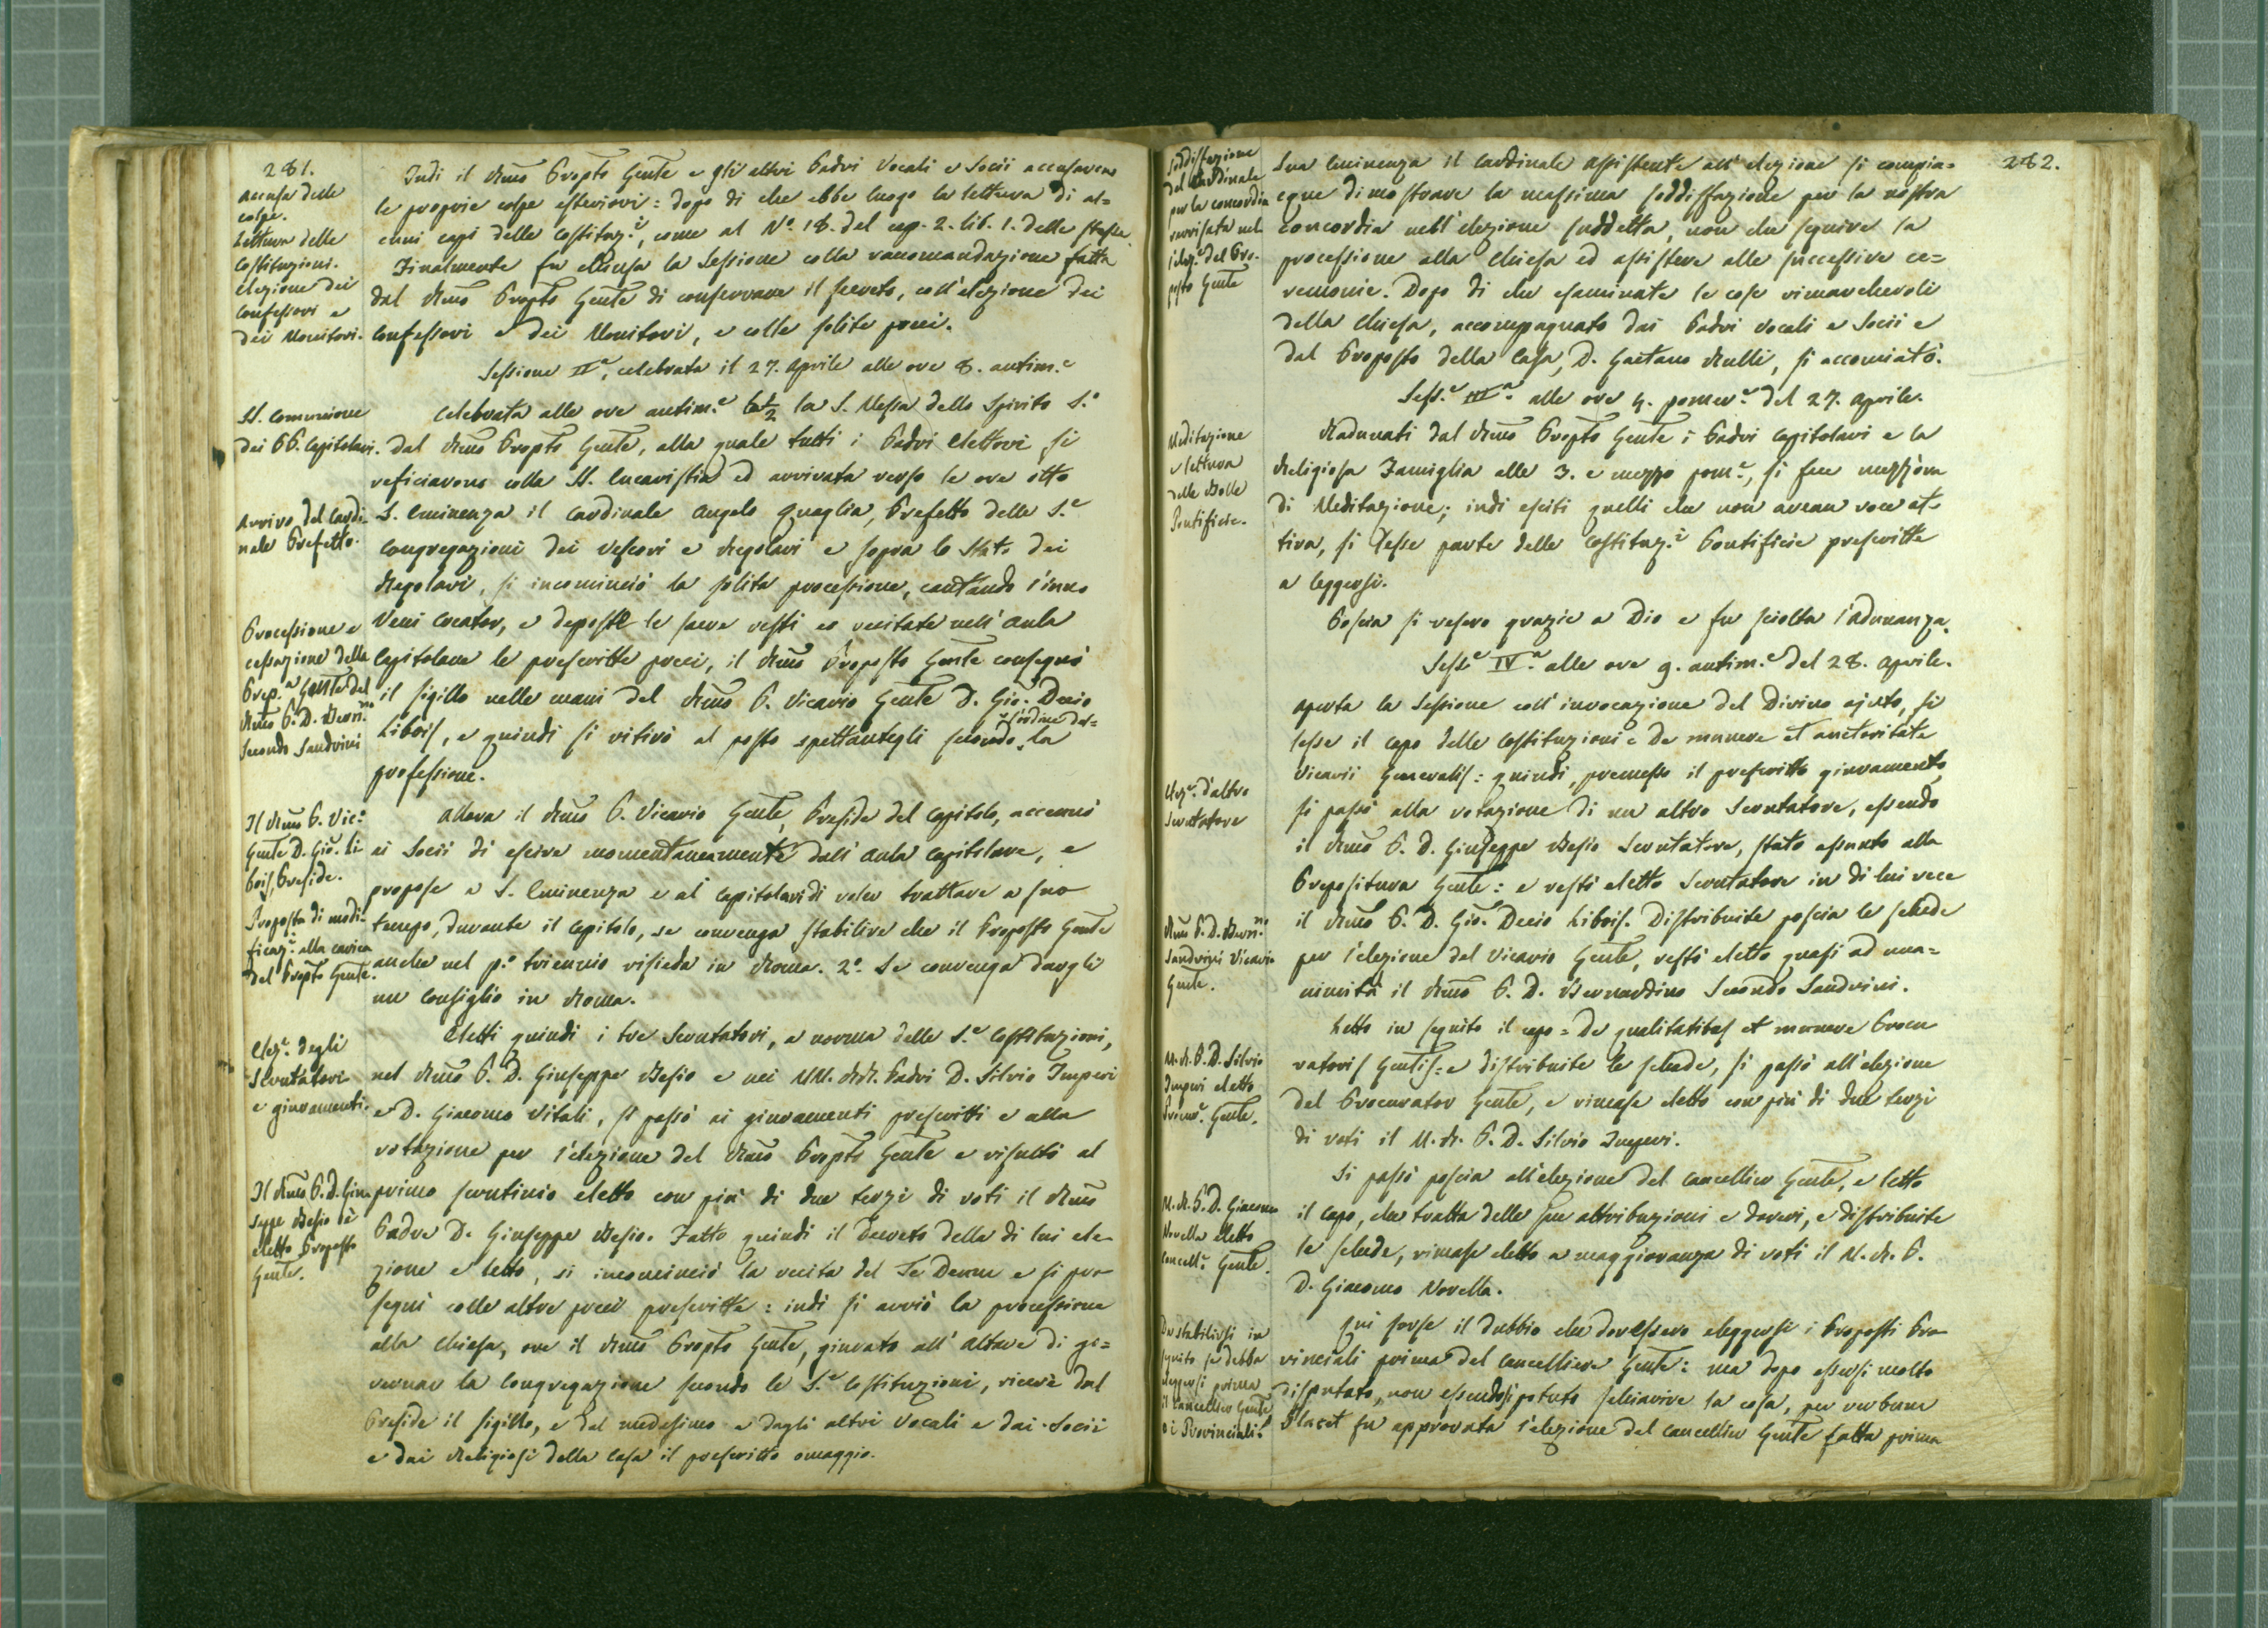 281.
Accusa delle
colpe.
Lettura delle
Costituzioni.
Elezione dei
Confessori e
dei Monitori.
SS. Comunione
dei PP. Capitolari.
Arrivo del Cardi-
nale Prefetto.
Processione e
cessazione della
Prep.a Genle del
Rmo P. D. Bern.no
Secondo Sandrini
Il Rmo P. Vic.o
Genle D. Gio. Li-
bois, Preside.
Proposta di modi-
ficaz.i alla carica
del Prepto Genle.
Elez.e degli
Scrutatori
e giuramenti.
Il Rmo P. D. Giu-
seppe Besio è
eletto Preposto
Genle.
Indi il Rmo Prepto Genle e gli altri Padri Vocali e Socii accusarono
le proprie colpe esteriori: dopo di che ebbe luogo la lettura di al=
cuni capi delle Costituz.i, come al No. 18. del cap. 2. lib. 1. delle stesse.
Finalmente fu chiusa la Sessione colla raccomandazione fatta
dal Rmo Prepto Genle di conservare il secreto, coll'elezione dei
Confessori e dei Monitori, e colle solite preci.
Sessione IIa, celebrata il 27. Aprile alle ore 8. antim.e
Celebrata alle ore antim.e 6 1/2 la S. Messa dello Spirito S.o
dal Rmo Prepto Genle, alla quale tutti i Padri Elettori si
reficiarono colla SS. Eucaristia ed arrivata verso le ore otto
S. Eminenza il Cardinale Angelo Quaglia, Prefetto delle S.e
Congregazioni dei Vescovi e Regolari e sopra lo Stato dei
Regolari, si incominciò la solita processione, cantando l'inno
Veni Creator, e deposte le sacre vesti e recitate nell'aula
Capitolare le prescritte preci, il Rmo Preposto Genle consegnò
il sigillo nelle mani del Rmo P. Vicario Genle D. Gio: Decio
Libois, e quindi si ritirò al posto spettantegli secondo l'ordine del=la
professione.
Allora il Rmo P. Vicario Genle, Preside del Capitolo, accennò
ai Socii di escire momentaneamente dall'aula Capitolare, e
propose a S. Eminenza e ai Capitolari di voler trattare a suo
tempo, durante il Capitolo, se convenga stabilire che il Preposto Genle
anche nel p.o triennio risieda in Roma. 2o. Se convenga dargli
un Consiglio in Roma.
Eletti quindi i tre Scrutatori, a norma delle S.e Costituzioni,
nel Rmo P. D. Giuseppe Besio e nei MM. RR. Padri D. Silvio Imperi
e D. Giacomo Vitali, si passò ai giuramenti prescritti e alla
votazione per l'elezione del Rmo Prepto Genle e risultò al
primo scrutinio eletto con più di due terzi di voti il Rmo
Padre D. Giuseppe Besio. Fatto quindi il Decreto della di lui ele-
zione e letto, si incominciò la recita del Te Deum e si pro-
seguì colle altre preci prescritte: indi si avviò la processione
alla Chiesa, ove il Rmo Prepto Genle, giurato all'Altare di go=
vernar la Congregazione secondo le S.e Costituzioni, ricevè dal
Preside il sigillo, e dal medesimo e dagli altri Vocali e dai Socii
e dai Religiosi della Casa il prescritto omaggio.
282.
Soddisfazione
del Cardinale
per la concordia
ravvisata nel
l'elez.e del Pre-
posto Genle
Meditazione
e lettura
delle Bolle
Pontificie.
Elez.e d'altro
Scrutatore
Rmo P. D. Bern.no
Sandrini Vicario
Genle.
M. R. P. D. Silvio
Imperi eletto
Procur.e Genle.
M. R. P. D. Giacomo
Novella eletto
Cancell.e Genle.
Da stabilirsi in
seguito se debba
eleggersi prima
il Cancellier Genle
o i Provinciali.
Sua Eminenza il Cardinale assistente all'elezione si compia=
cque dimostrare la massima soddisfazione per la nostra
concordia nell'elezione suddetta, non che seguire la
processione alla Chiesa ed assistere alle successive ce=
remonie. Dopo di che esaminate le cose rimarchevoli
della Chiesa, accompagnato dai Padri Vocali e Socii e
dal Preposto della Casa, D. Gaetano Rulli, si accomiatò.
Sess.e IIIa. alle ore 4. pomer.e del 27. Aprile.
Radunati dal Rmo Prepto Genle i Padri Capitolari e la
Religiosa Famiglia alle 3. e mezzo pom.e, si fece mezz'ora
di Meditazione; indi esciti quelli che non avean voce at-
tiva, si lesse parte delle Costituz.i Pontificie prescritte
a leggersi.
Poscia si resero grazie a Dio e fu sciolta l'Adunanza.
Sess.e IVa. alle ore 9. antim.e del 28. Aprile.
Aperta la Sessione coll'invocazione del Divino ajuto, si
lesse il capo delle Costituzioni = De munere et auctoritate
Vicarii Generalis: quindi, premesso il prescritto giuramento,
si passò alla votazione di un altro Scrutatore, essendo
il Rmo P. D. Giuseppe Besio Scrutatore, stato assunto alla
Prepositura Genle: e restò eletto Scrutatore in di lui vece
il Rmo P. D. Gio. Decio Libois. Distribuite poscia le schede
per l'elezione del Vicario Genle, restò eletto quasi ad una=
nimità il Rmo P. D. Bernardino Secondo Sandrini.
Letto in seguito il capo = De qualitatibus et munere Procu
ratoris Genlis: e distribuite le schede, si passò all'elezione
del Procurator Genle, e rimase eletto con più di due terzi
di voti il M. R. P. D. Silvio Imperi.
Si passò poscia all'elezione del Cancellier Genle, e letto
il capo, che tratta delle sue attribuzioni e doveri, e distribuite
le schede, rimase eletto a maggioranza di voti il M. R. P.
D. Giacomo Novella.
Qui sorse il dubbio che dovessero eleggersi i Preposti Pro-
vinciali prima del Cancelliere Genle: ma dopo essersi molto
disputato, non essendosi potuto schiarire la cosa, per verbum
Placet fu approvata l'elezione del Cancellier Genle fatta prima